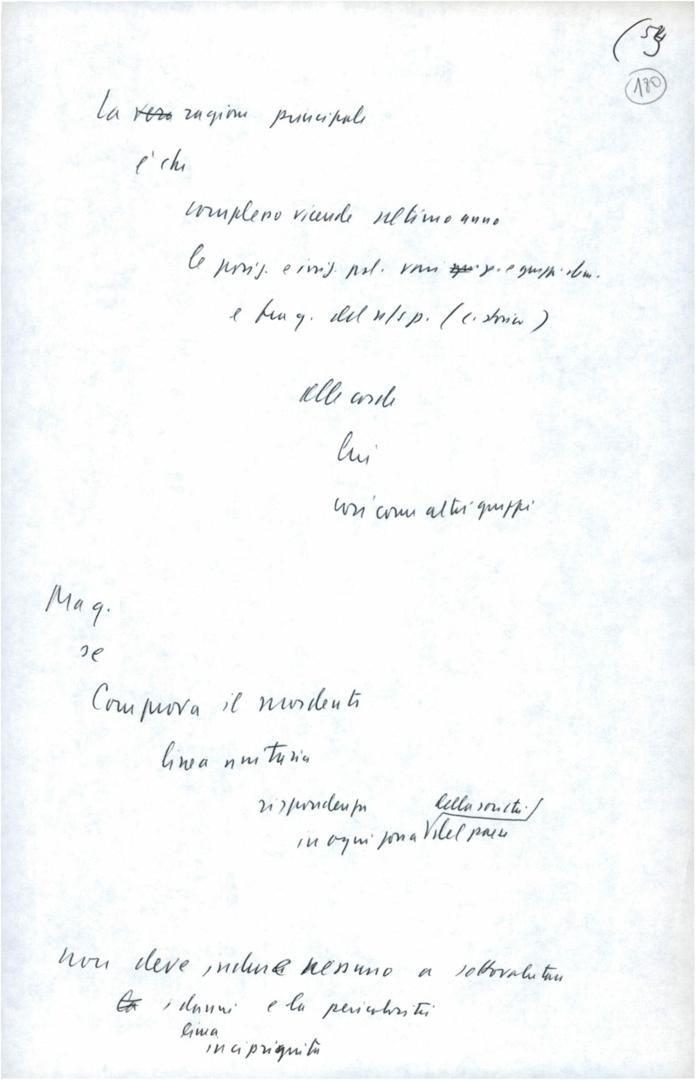 (54
180
La vera ragione principale
è che
complesso vicende ultimo anno
le posiz. e iniz. pol. vari e gruppi dem.
e tra q. del n/s p. (e. storico)
delle corde
lui
così come altri gruppi
Ma q.
se
Comprova il mordente
linea unitaria
rispondenza della società
in ogni zona del paese
non deve indurre nessuno a sottovalutare
i danni e la pericolosità
linea
incipriguita